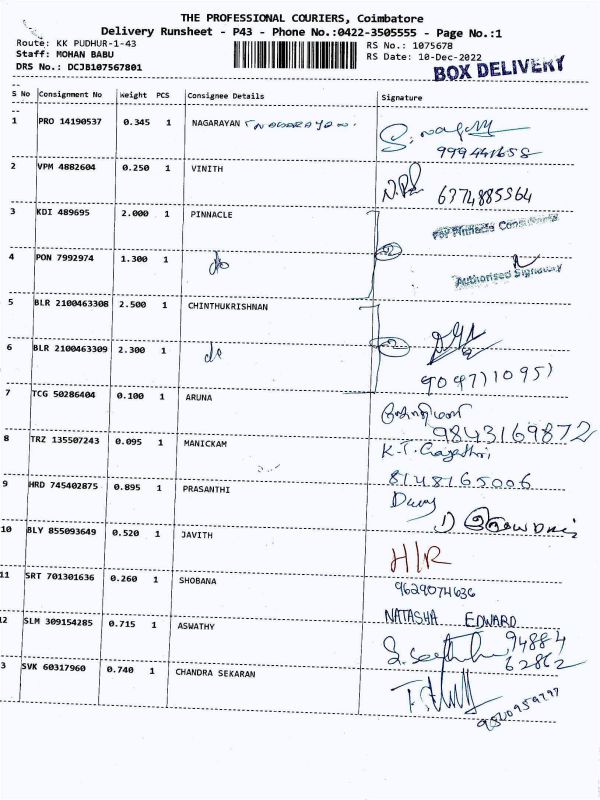 THE PROFESSIONAL COURIERS, Coimbatore
Delivery Runsheet - P43 - Phone No.:0422-3505555 - Page No.:1
Route: KK PUDHUR-1-43
RS No.: 1075678
Staff: MOHAN BABU
RS Date: 10-Dec-2022
DRS No.: DCJB107567801
BOX DELIVERY
S No Consignment No Weight PCS Consignee Details Signature
1 PRO 14190537 0.345 1 NAGARAYAN
2 VPM 4882604 0.250 1 VINITH
6374885564
3 KDI 489695 2.000 1 PINNACLE
For Pinnacle Consultants
4 PON 7992974 1.300 1 do
Authorised Signatory
5 BLR 2100463308 2.500 1 CHINTHUKRISHNAN
6 BLR 2100463309 2.300 1 do
9097711095)
7 TCG 50286404 0.100 1 ARUNA
9843169872
8 TRZ 135507243 0.095 1 MANICKAM
K.T. Gayathri
8148165006
9 HRD 745402875 0.895 1 PRASANTHI
10 BLY 855093649 0.520 1 JAVITH
H/R
11 SRT 701301636 0.260 1 SHOBANA
9629074636
NATASHA EDWARD
12 SLM 309154285 0.715 1 ASWATHY
94884
62862
3 SVK 60317960 0.740 1 CHANDRA SEKARAN